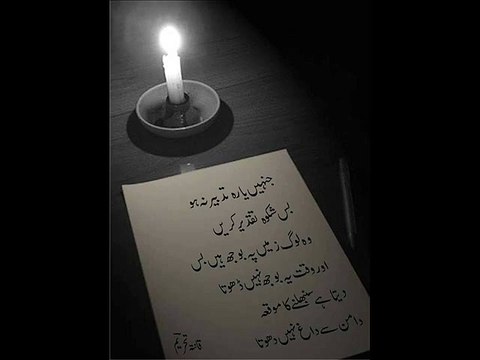 جنہیں یارہ تدبیر نہ ہو
بس شکوہ تقدیر کریں
وہ لوگ زمیں پہ بوجھ ہیں بس
اور وقت یہ بوجھ نہیں ڈھوتا
دیتا ہے سنبھلنے کا موقعہ
دامن سے داغ نہیں دھوتا
قانتہ تحریم